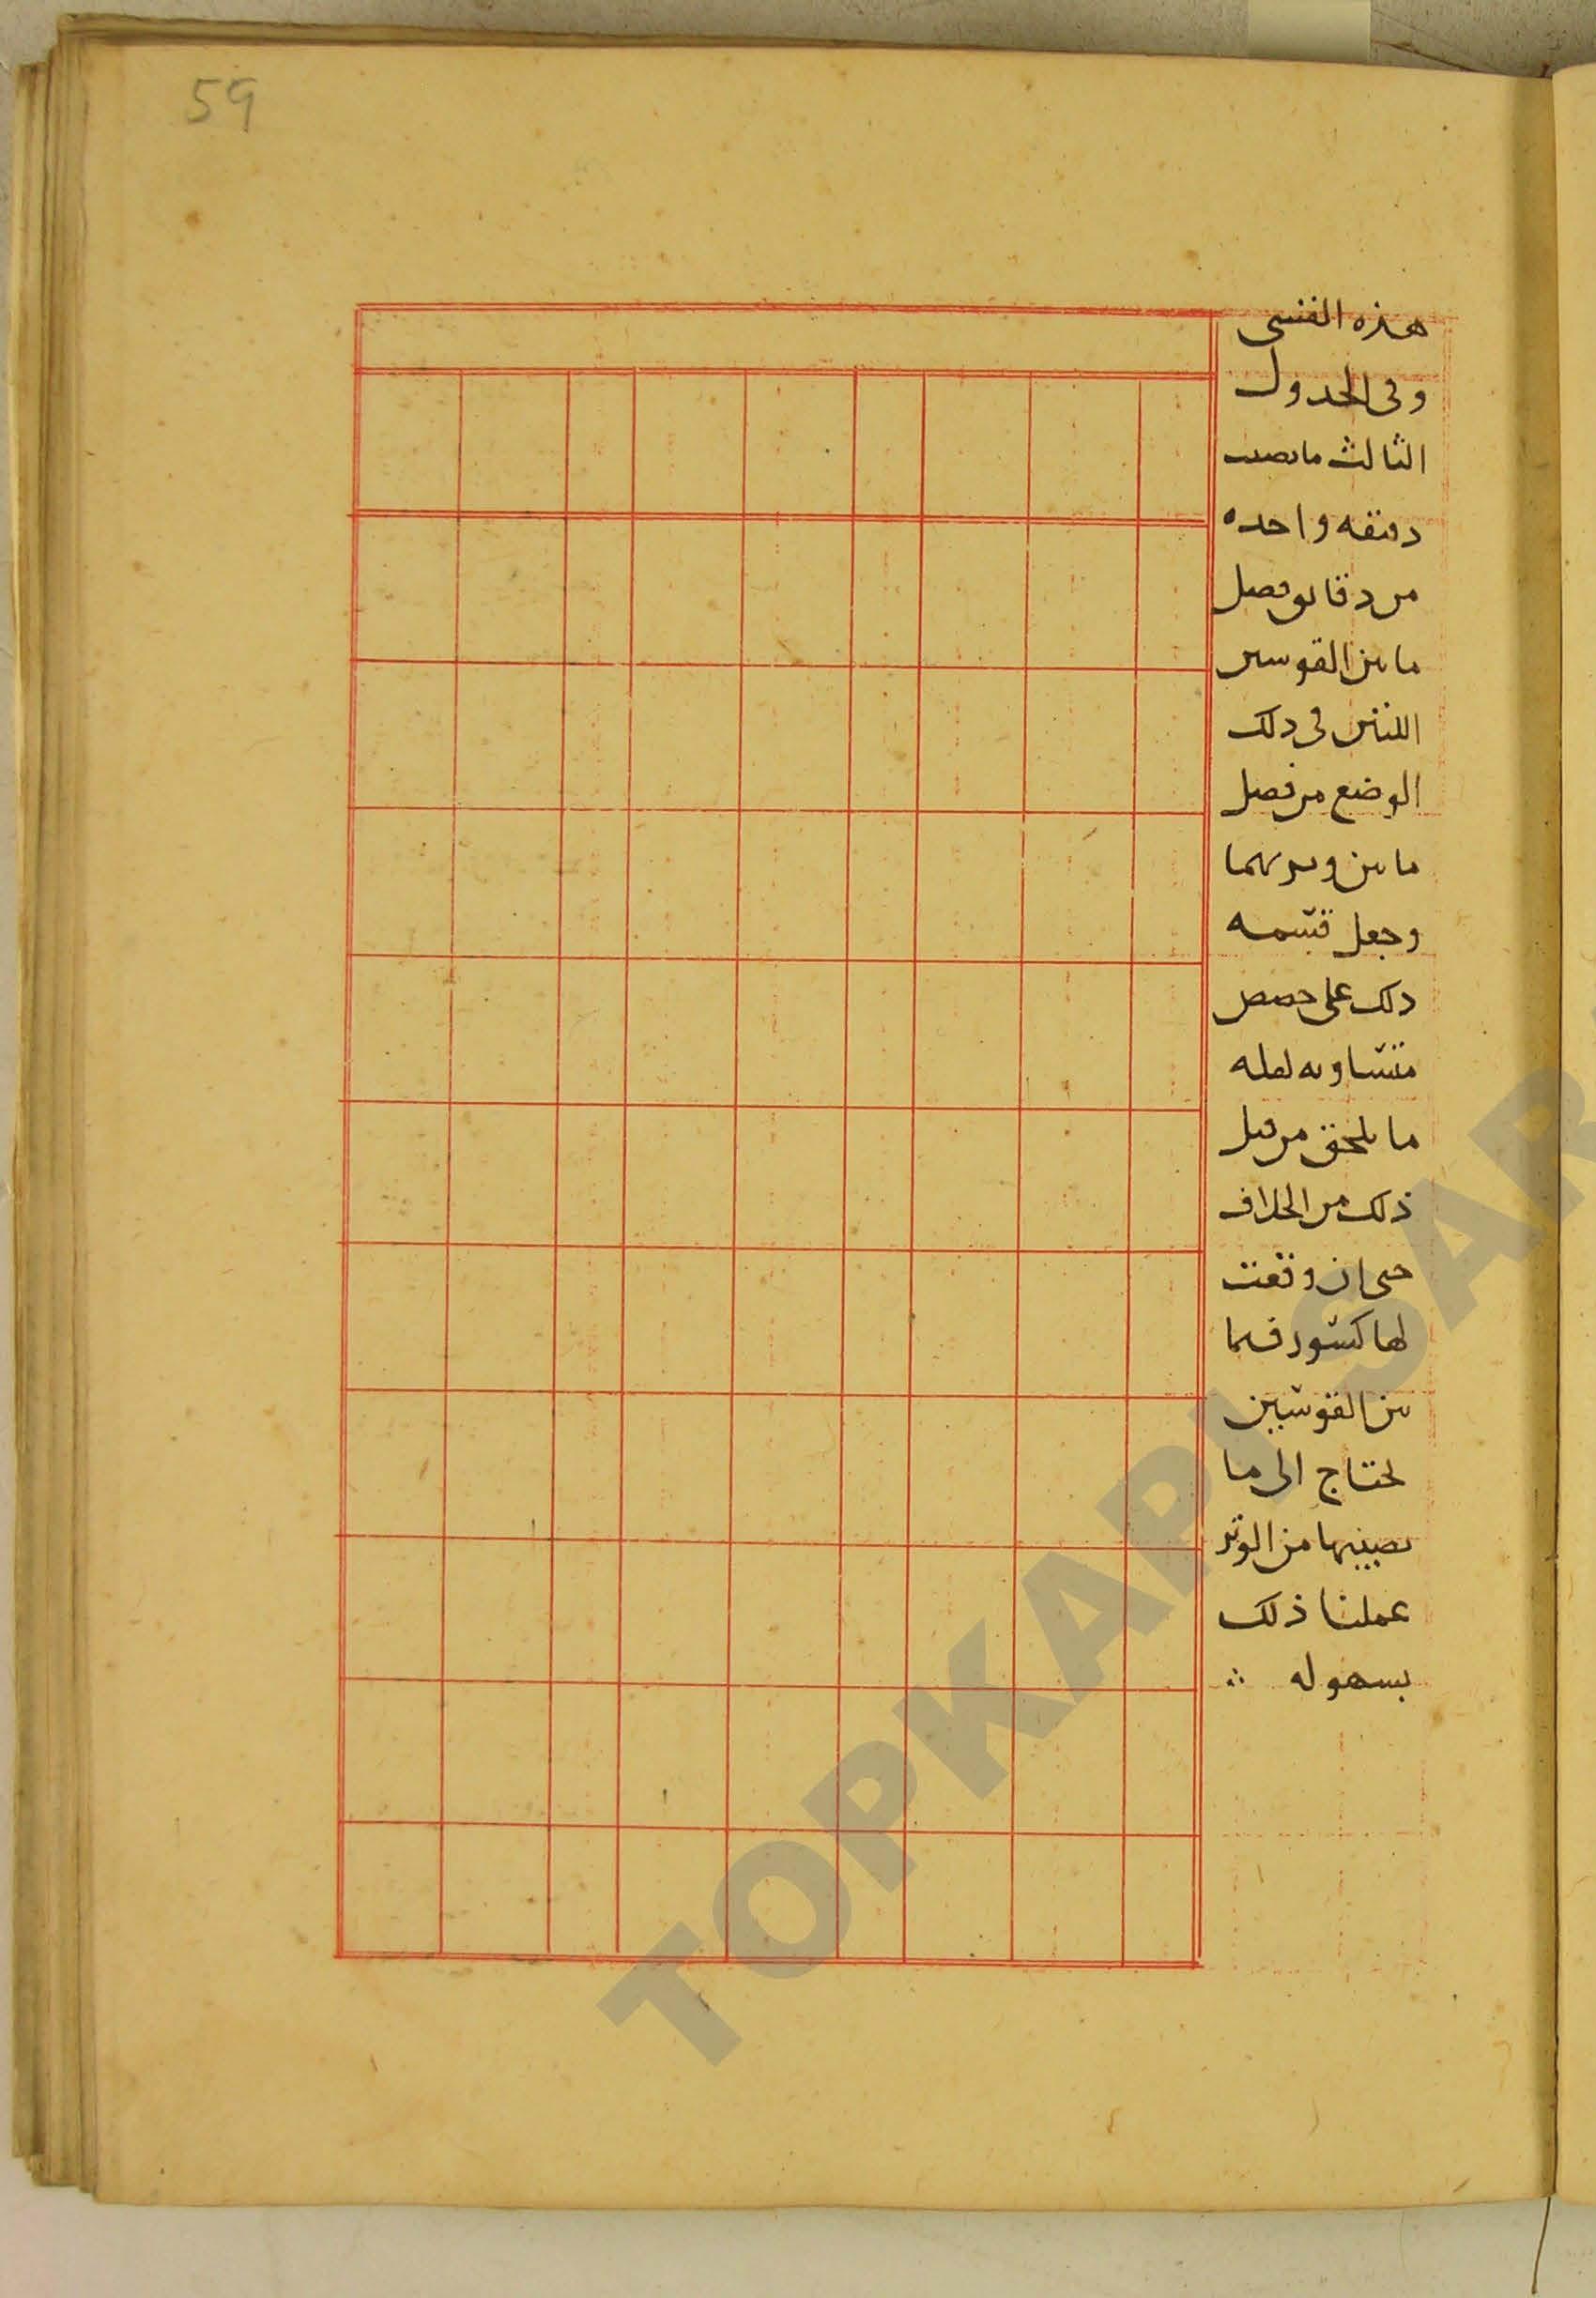 59
هذه القسى
وفى الجدول
الثالث ما يصيب
دقيقه واحده
من دقايق فصل
ما بين القوسين
اللتين فى ذلك
الوضع من فصل
ما بين وتريهما
وجعل قسمه
ذلك على حصص
متساويه لعله
ما يلحق من قبل
ذلك من الخلاف
حتى ان وقعت
لها كسور فيما
بين القوسين
نحتاج الى ما
يصيبها من الوتر
عملنا ذلك
بسهوله ∴
TOPKAPI SAR